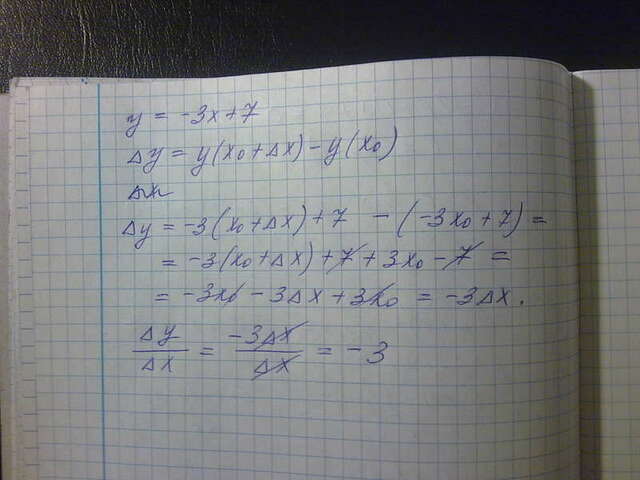 y = -3x+7
Δy = y(x₀+Δx)-y(x₀)
Δy = -3(x₀+Δx)+7 -(-3x₀+7)=
= -3(x₀+Δx)+7+3x₀-7 =
= -3x₀-3Δx+3x₀ = -3Δx.
Δy/Δx = -3Δx/Δx = -3